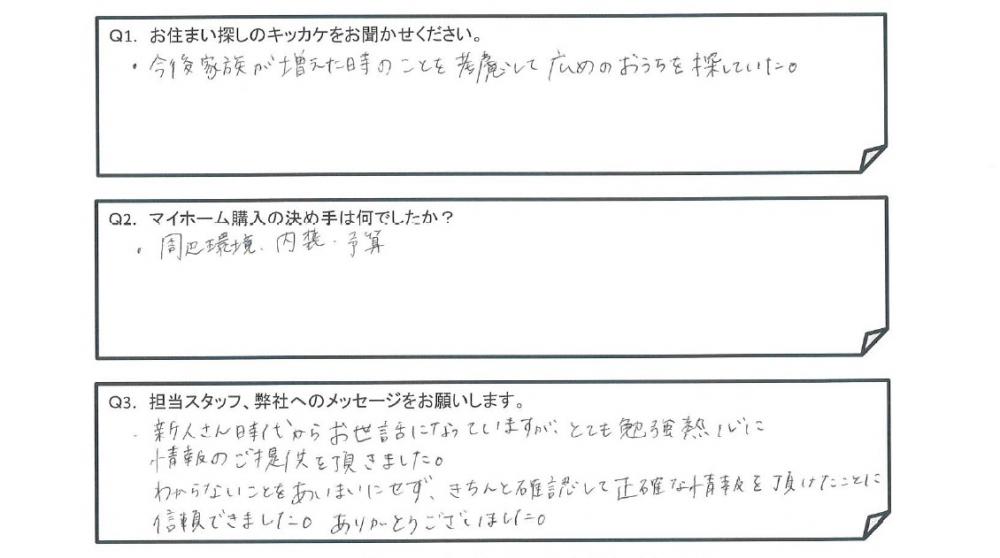 Q1. お住まい探しのキッカケをお聞かせください。
・今後家族が増えた時のことを考慮して広めのおうちを探していた。
Q2. マイホーム購入の決め手は何でしたか？
・周辺環境、内装・予算
Q3. 担当スタッフ、弊社へのメッセージをお願いします。
・新人さん時代からお世話になっていますが、とても勉強熱心に
情報のご提供を頂きました。
わからないことをあいまいにせず、きちんと確認して正確な情報を頂けたことに
信頼できました。ありがとうございました。